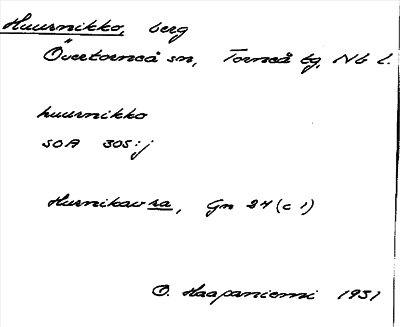 Huurnikko, berg
Övertorneå sn, Torneå tg, Nb l.
huurnikko
SOA 305:j
Hurnikavra, Gn 24 (c 1)
O. Haapaniemi 1931